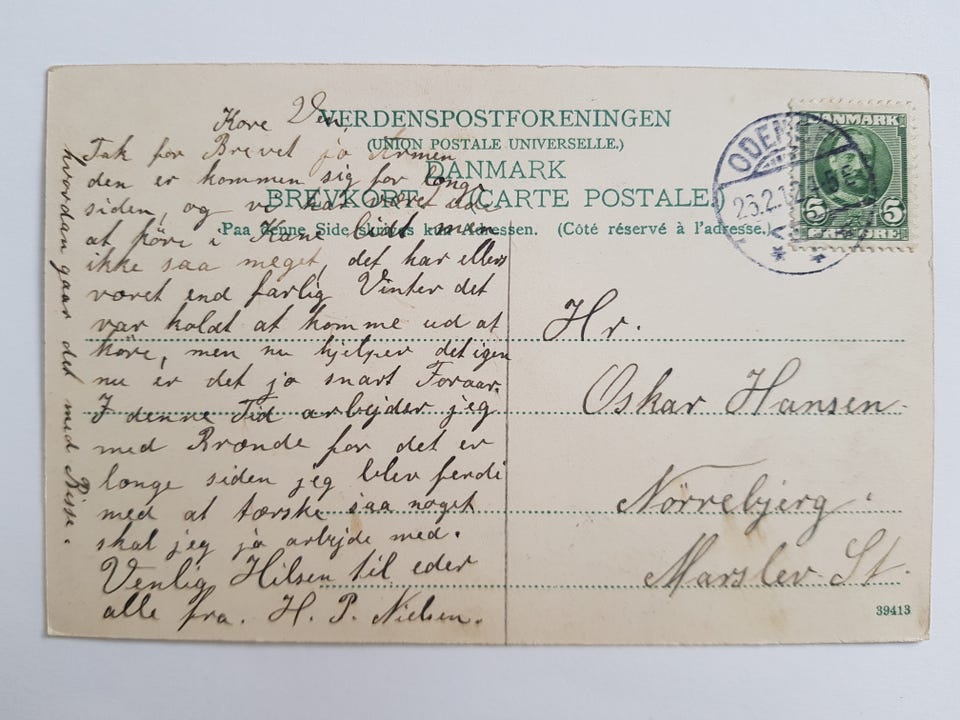 VERDENSPOSTFORENINGEN
(UNION POSTALE UNIVERSELLE.)
DANMARK
BREVKORT. CARTE POSTALE.
Paa denne Side skrives kun Adressen. (Côté réservé à l'adresse.)
DANMARK
5 5
ØRE
ODENSE
Kære Ven
Tak for Brevet jo Armen
den er kommen sig for længe
siden, og vi har været ude
at köre i Kane lidt men
ikke saa meget, det har ellers
været end farlig Vinter det
var koldt at komme ud at
köre, men nu hjelper det igen
nu er det jo snart Foraar.
I denne Tid arbejder jeg
med Brænde for det er
længe siden jeg blev ferdi
med at tærske saa noget
skal jeg jo arbejde med.
Venlig Hilsen til eder
alle fra. H. P. Nielsen.
hvordan gaar det med Risse.
Hr.
Oskar Hansen
Nörrebjerg
Marslev St.
39413